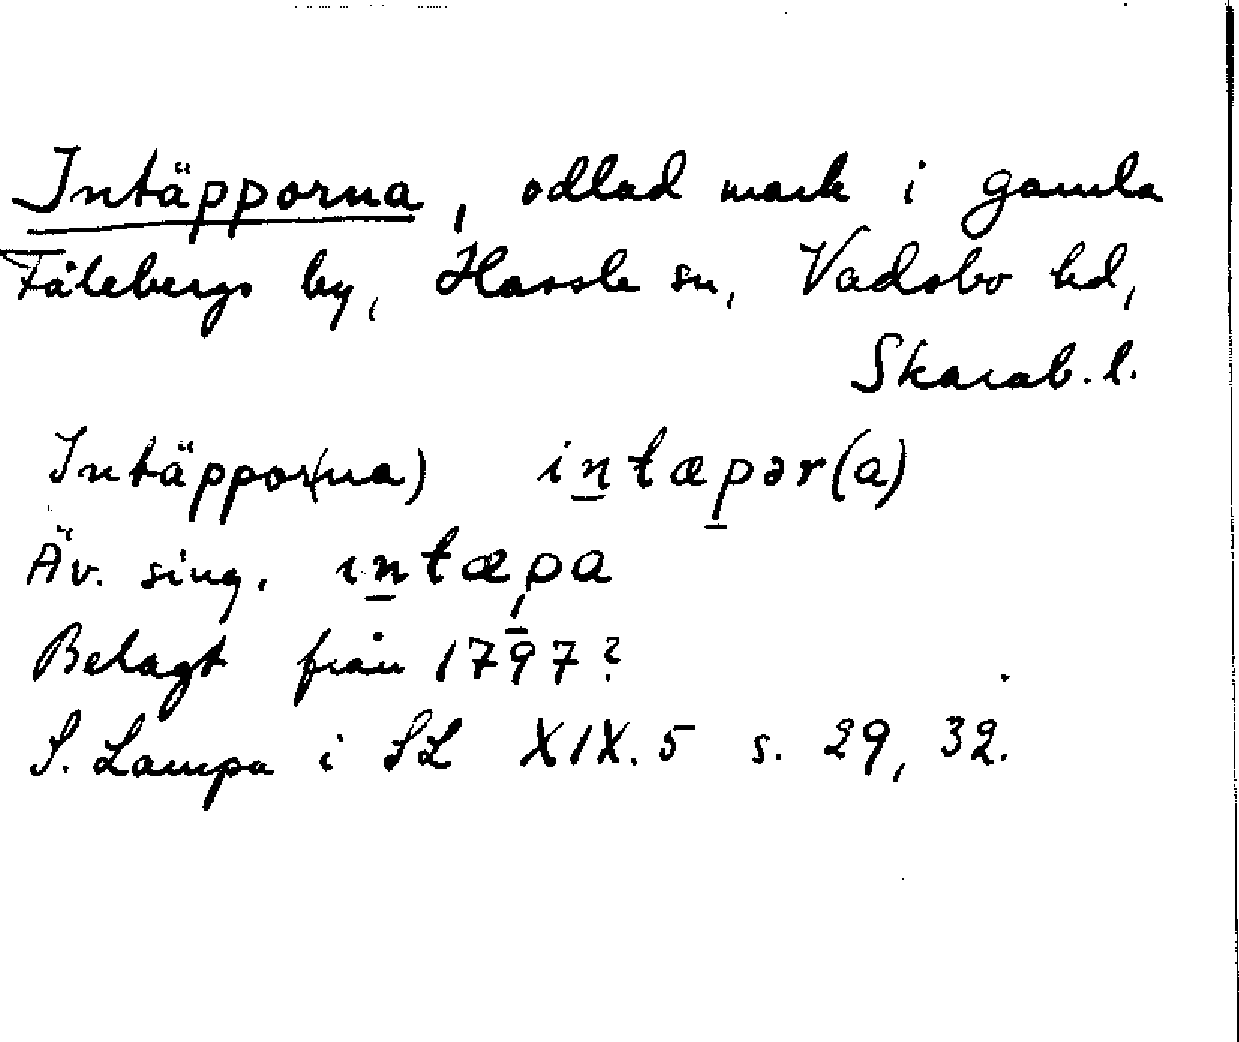 Intäpporna, odlad mark i gamla
Fålebergs by, Hassle sn, Vadsbo hd,
Skarab. l.
Intäppor(na) in̲tæp̲ər(a)
Äv. sing. ın̲tæp̲a
Belagt från 1797?
S. Lampa i SL XIX.5 s. 29, 32.